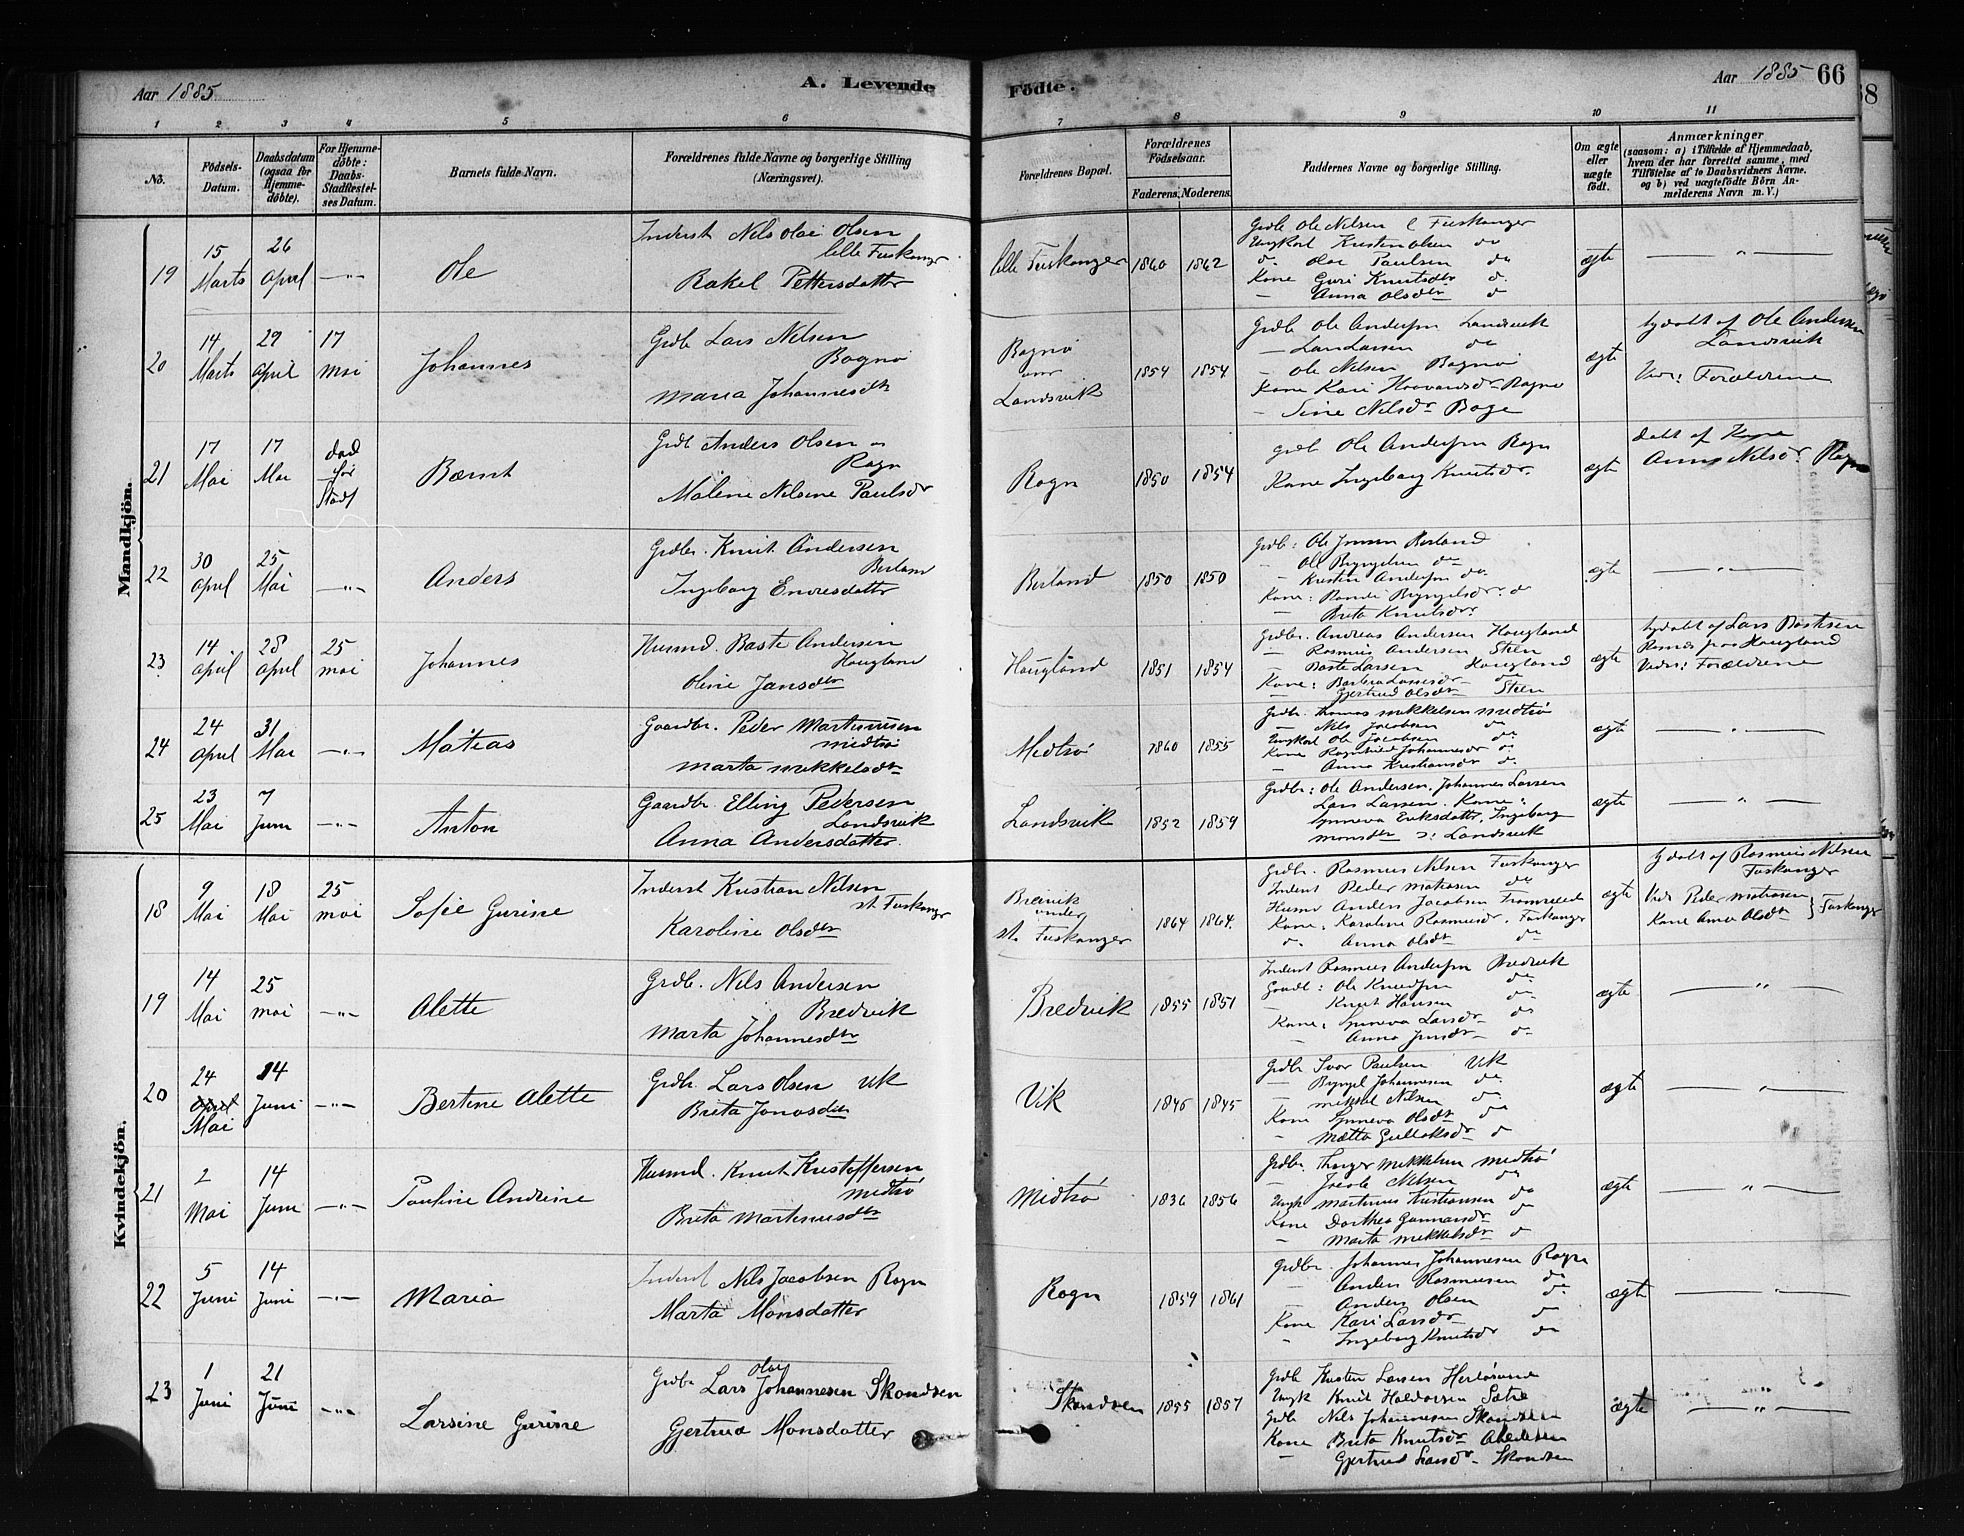 Aar 1885
A. Levende
Födte.
Aar 1885
66
68
1 2 3 4 5 6 7 8 9 10 11
No.
Födsels-
Datum.
Daabsdatum
(ogsaa for
Hjemme-
döbte).
For Hjemme-
döbte:
Daabs-
Stadfæstel-
ses Datum.
Barnets fulde Navn.
Forældrenes fulde Navne og borgerlige Stilling
(Næringsvei).
Forældrenes Bopæl.
Forældrenes
Födselsaar.
Faderens. Moderens.
Faddernes Navne og borgerlige Stilling.
Om ægte
eller
uægte
født.
Anmærkninger
(saasom: a) i Tilfælde af Hjemmedaab,
hvem der har forrettet samme, med
Tilföielse af to Daabsvidners Navne.
og b) ved uægtefödte Börn An-
melderens Navn m. V.)
Mandkjön.
19
15
Marts
26
April
—"—
Ole
Inderst Nils Olai Olsen
lille Fuskanger
Rakel Pettersdatter
lille Fuskanger
1860 1862
Grdb Ole Nilsen l Fuskanger
Ungkarl Kristen Olsen do
d. Olai Paulsen do
Kone Guri Knutsdtr d.
— Anna Olsdtr d
ægte
— " —
20
14
Marts
29
April
17
Mai
Johannes
Grdb Lars Nilsen
Bognö
Maria Johannesdtr
Bognö
Landsvik
1854 1854
Grdb Ole Andersen Landsvik
— Lars Larsen do
— Ole Nilsen Bognö
Kone Kari Bognö
— Nilsdr
ægte
hjdøbt af Ole Andersen
Landsvik
Vidn: Forældrene
21
17
Mai
17
Mai
død
før
Stadf
Bærnt
Grdb Anders Olsen
Rogn
Malene Nilsine Paulsdr
Rogn
1850 1854
Grdb Ole Andersen Rogn
Kone Ingeborg Knutsdr.
ægte
døbt af Kone
Anna Nilsdr. Rogn
22
30
April
25
Mai
—"—
Anders
Grdbr. Knut Andersen
Berland
Ingeborg Endresdatter
Berland
1850 1850
Grdb: Ole Jensen Berland
— Ole Bryngelsen do
— Kristen Andersen do.
Kone: Bryngelsdr. do
— Brita Knutsdr.
ægte
— " —
23
14
April
28
April
25
Mai
Johannes
Husmd. Baste Andersen
Hougland
Oline Jansdtr
Hougland
1851 1854
Grdbr. Andreas Andersen Hougland
— Rasmus Andersen Steen
— Baste Larsen Hougland
Kone: Barbra Larsesdr do
— Gjertrud Olsdtr Steen
ægte
hjdøbt af Lars Bastesen
Hougland
Vidn: Forældrene
24
24
April
31
Mai
—"—
Matias
Gaardbr. Peder Martinusen
Medtsö
Marta Mikkelsdtr
Medtsö
1860 1855
Grdbr. Thomas Mikkelsen Medtsö
— Nils Jacobsen do
Ungkarl Ole Jacobsen do
Kone Ragnhild Johannesdr do
— Anna Kristiansdr d.
ægte
— " —
25
23
Mai
7
Juni
—"—
Anton
Gaardbr. Elling Pedersen
Landsvik
Anna Andersdatter.
Landsvik
1852 1859
Grdbr: Ole Andersen, Johannes Larsen
Lars Larsen. Kone:
Synneva Eriksdatter, Ingeborg
Monsdtr : Landsvik
ægte
— " —
Kvindekjön.
18
9
Mai
18
Mai
25
Mai
Sofie Gurine
Inderst Kristian Nilsen
st. Fuskanger
Karoline Olsdtr
Bredvik
under
st. Fuskanger
1864 1864.
Grdbr. Rasmus Nilsen Fuskanger
Inderst Peder Matiasen do
Husmd Anders Jacobsen
Kone: Karoline Rasmusdr. Fuskanger
d. Anna Olsdtr do
ægte
hjdøbt af Rasmus Nilsen
Fuskanger
Vidn Peder Matiasen
Kone Anna Olsdtr } Fuskanger
19
14
Mai
25
Mai
—"—
Alette
Grdb. Nils Andersen
Bredvik
Marta Johannesdtr
Bredvik
1855 1851
Inderst Rasmus Andersen Bredvik
Gaardb: Ole Knudsen do
— Knut Hansen do.
Kone: Synneva Larsdr do
— Anna Jensdr d.
ægte
— " —
20
24
April
Mai
14
Juni
—"—
Bertine Alette
Grdbr. Lars Olsen Vik
Brita Jonasdtr
Vik
1846 1845
Grdbr Ivar Paulsen Vik
— Bryngel Johannesen do
— Mikkel Nilsen do.
Kone Synneva Olsdtr do
— Mætta Gulloksdr d
ægte
— " —
21
2
Mai
14
Juni
—"—
Pauline Andrine
Husmd. Knut Kristoffersen
Medtsö
Brita Martinusdtr
Midtsö
1836 1856
Grdbr. Mikkelsen Medtsö
— Nilsen do
Ungk Martinus Kristiansen do
Kone Dorthea Gunnarsdr d.
— Marta Mikkelsdr d
ægte
— " —
22
5
Juni
14
Juni
—"—
Maria
Inderst Nils Jacobsen Rogn
Marta Monsdatter
Rogn
1859 1861
Grdbr. Johannes Johannesen Rogn
— Anders Rasmusen do
— Anders Olsen d.
Kone Kari Larsdr do
— Ingeborg Knutsdr do
ægte
— " —
23
1
Juni
21
Juni
—"—
Larsine Gurine
Grdbr Lars Olai Johannesen Skondsen
Gjertrud Monsdatter
Skondsen
1855 1857
Grdb Kristen Larsen Herlösund
Ungk Knut Haldorsen Sætre
Grdb Nils Johannesen Skondsen
Kone Brita Knutsdr
Gjertrud Larsdr. Skondsen
ægte
— " —